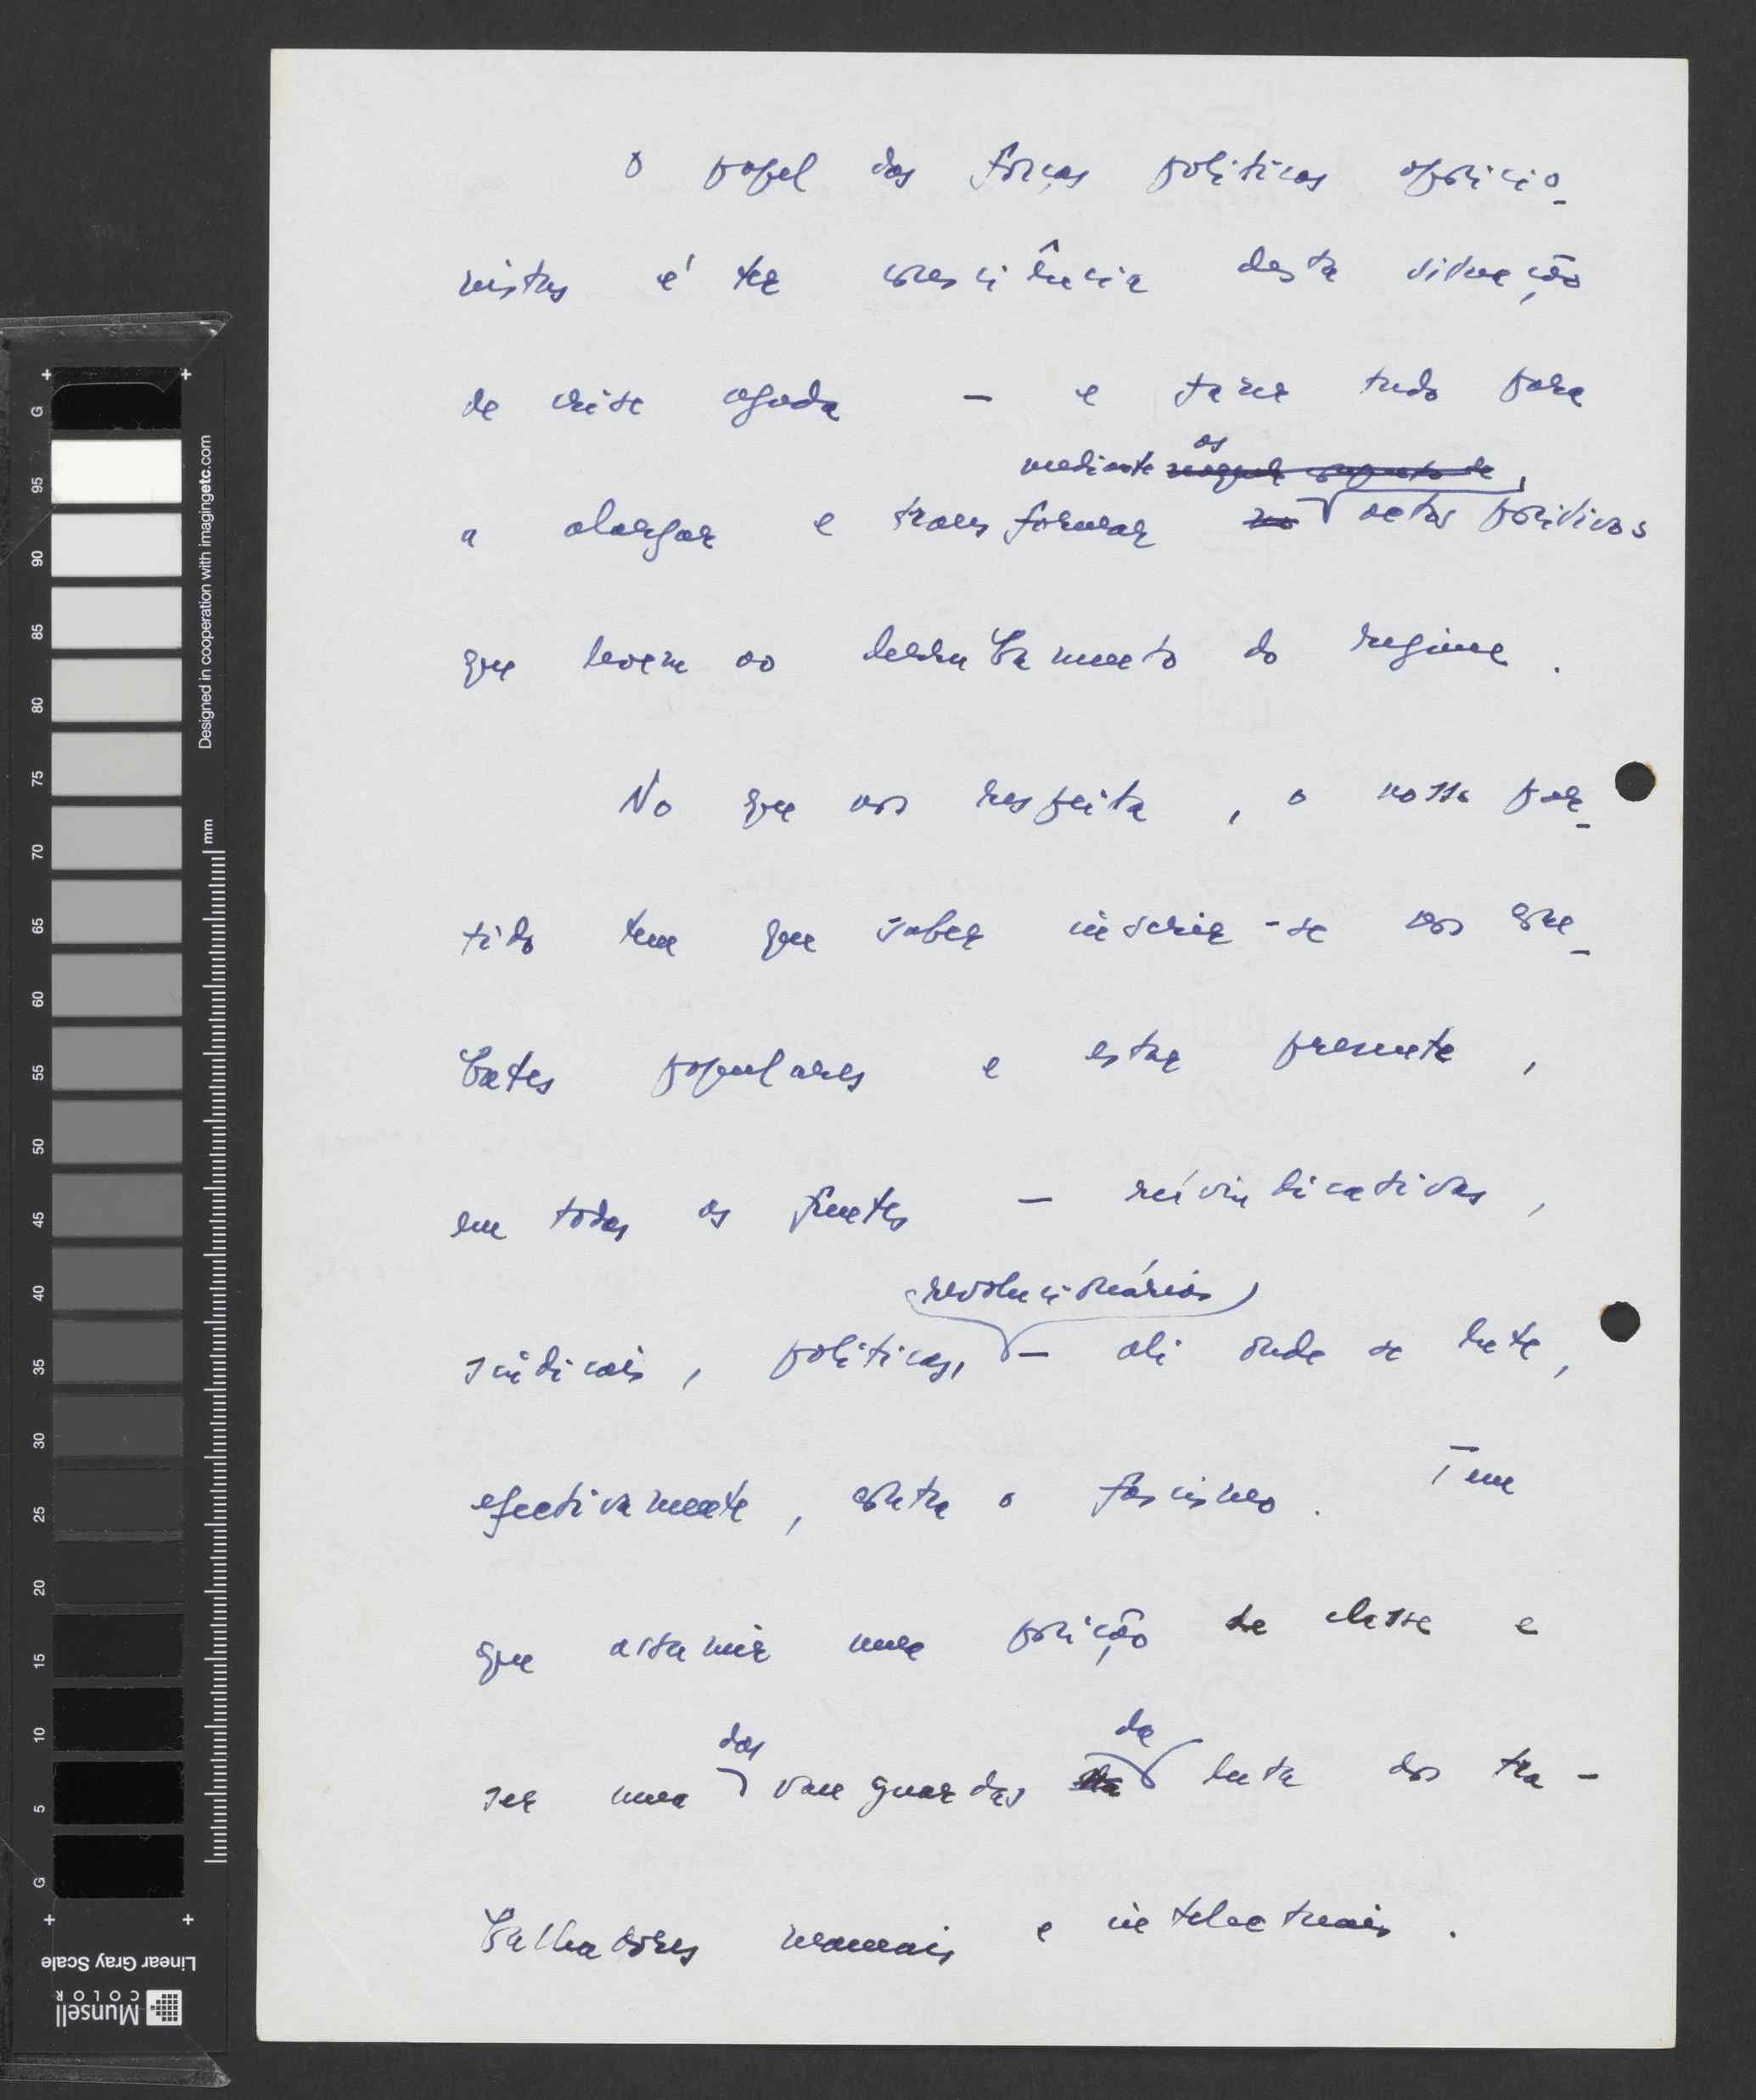 O papel das forças politicas oposicio-
nistas é ter consciência desta situação
de crise aguda — e fazer tudo para
mediante os
a alargar e transformar actos positivos
que levem ao derrubamento do regime.
No que nos respeita, o nosso par-
tido tem que saber inserir-se nos com-
bates populares e estar presente,
em todas as frentes — reivindicativas,
revolucionárias
sindicais, politicas, — ali onde se luta,
efectivamente, contra o fascismo. Tem
que assumir uma posição de classe e
das da
ser uma vanguardas luta dos tra-
balhadores manuais e intelectuais.
G 95 90 85 80 75 70 65 60 55 50 45 40 35 30 25 20 15 10 5 G
Designed in cooperation with imagingetc.com
mm
Linear Gray Scale
Munsell
COLOR